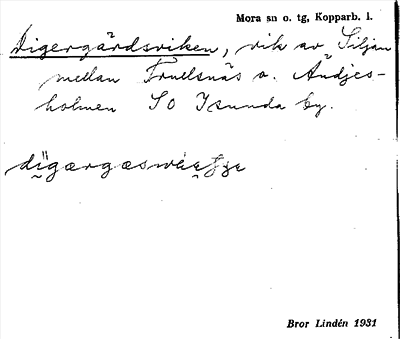 Mora sn o. tg, Kopparb. l.
Digergårdsviken, vik av Siljan
mellan Truelsnäs o. Andjes-
holmen SO Isunda by.
Bror Lindén 1931